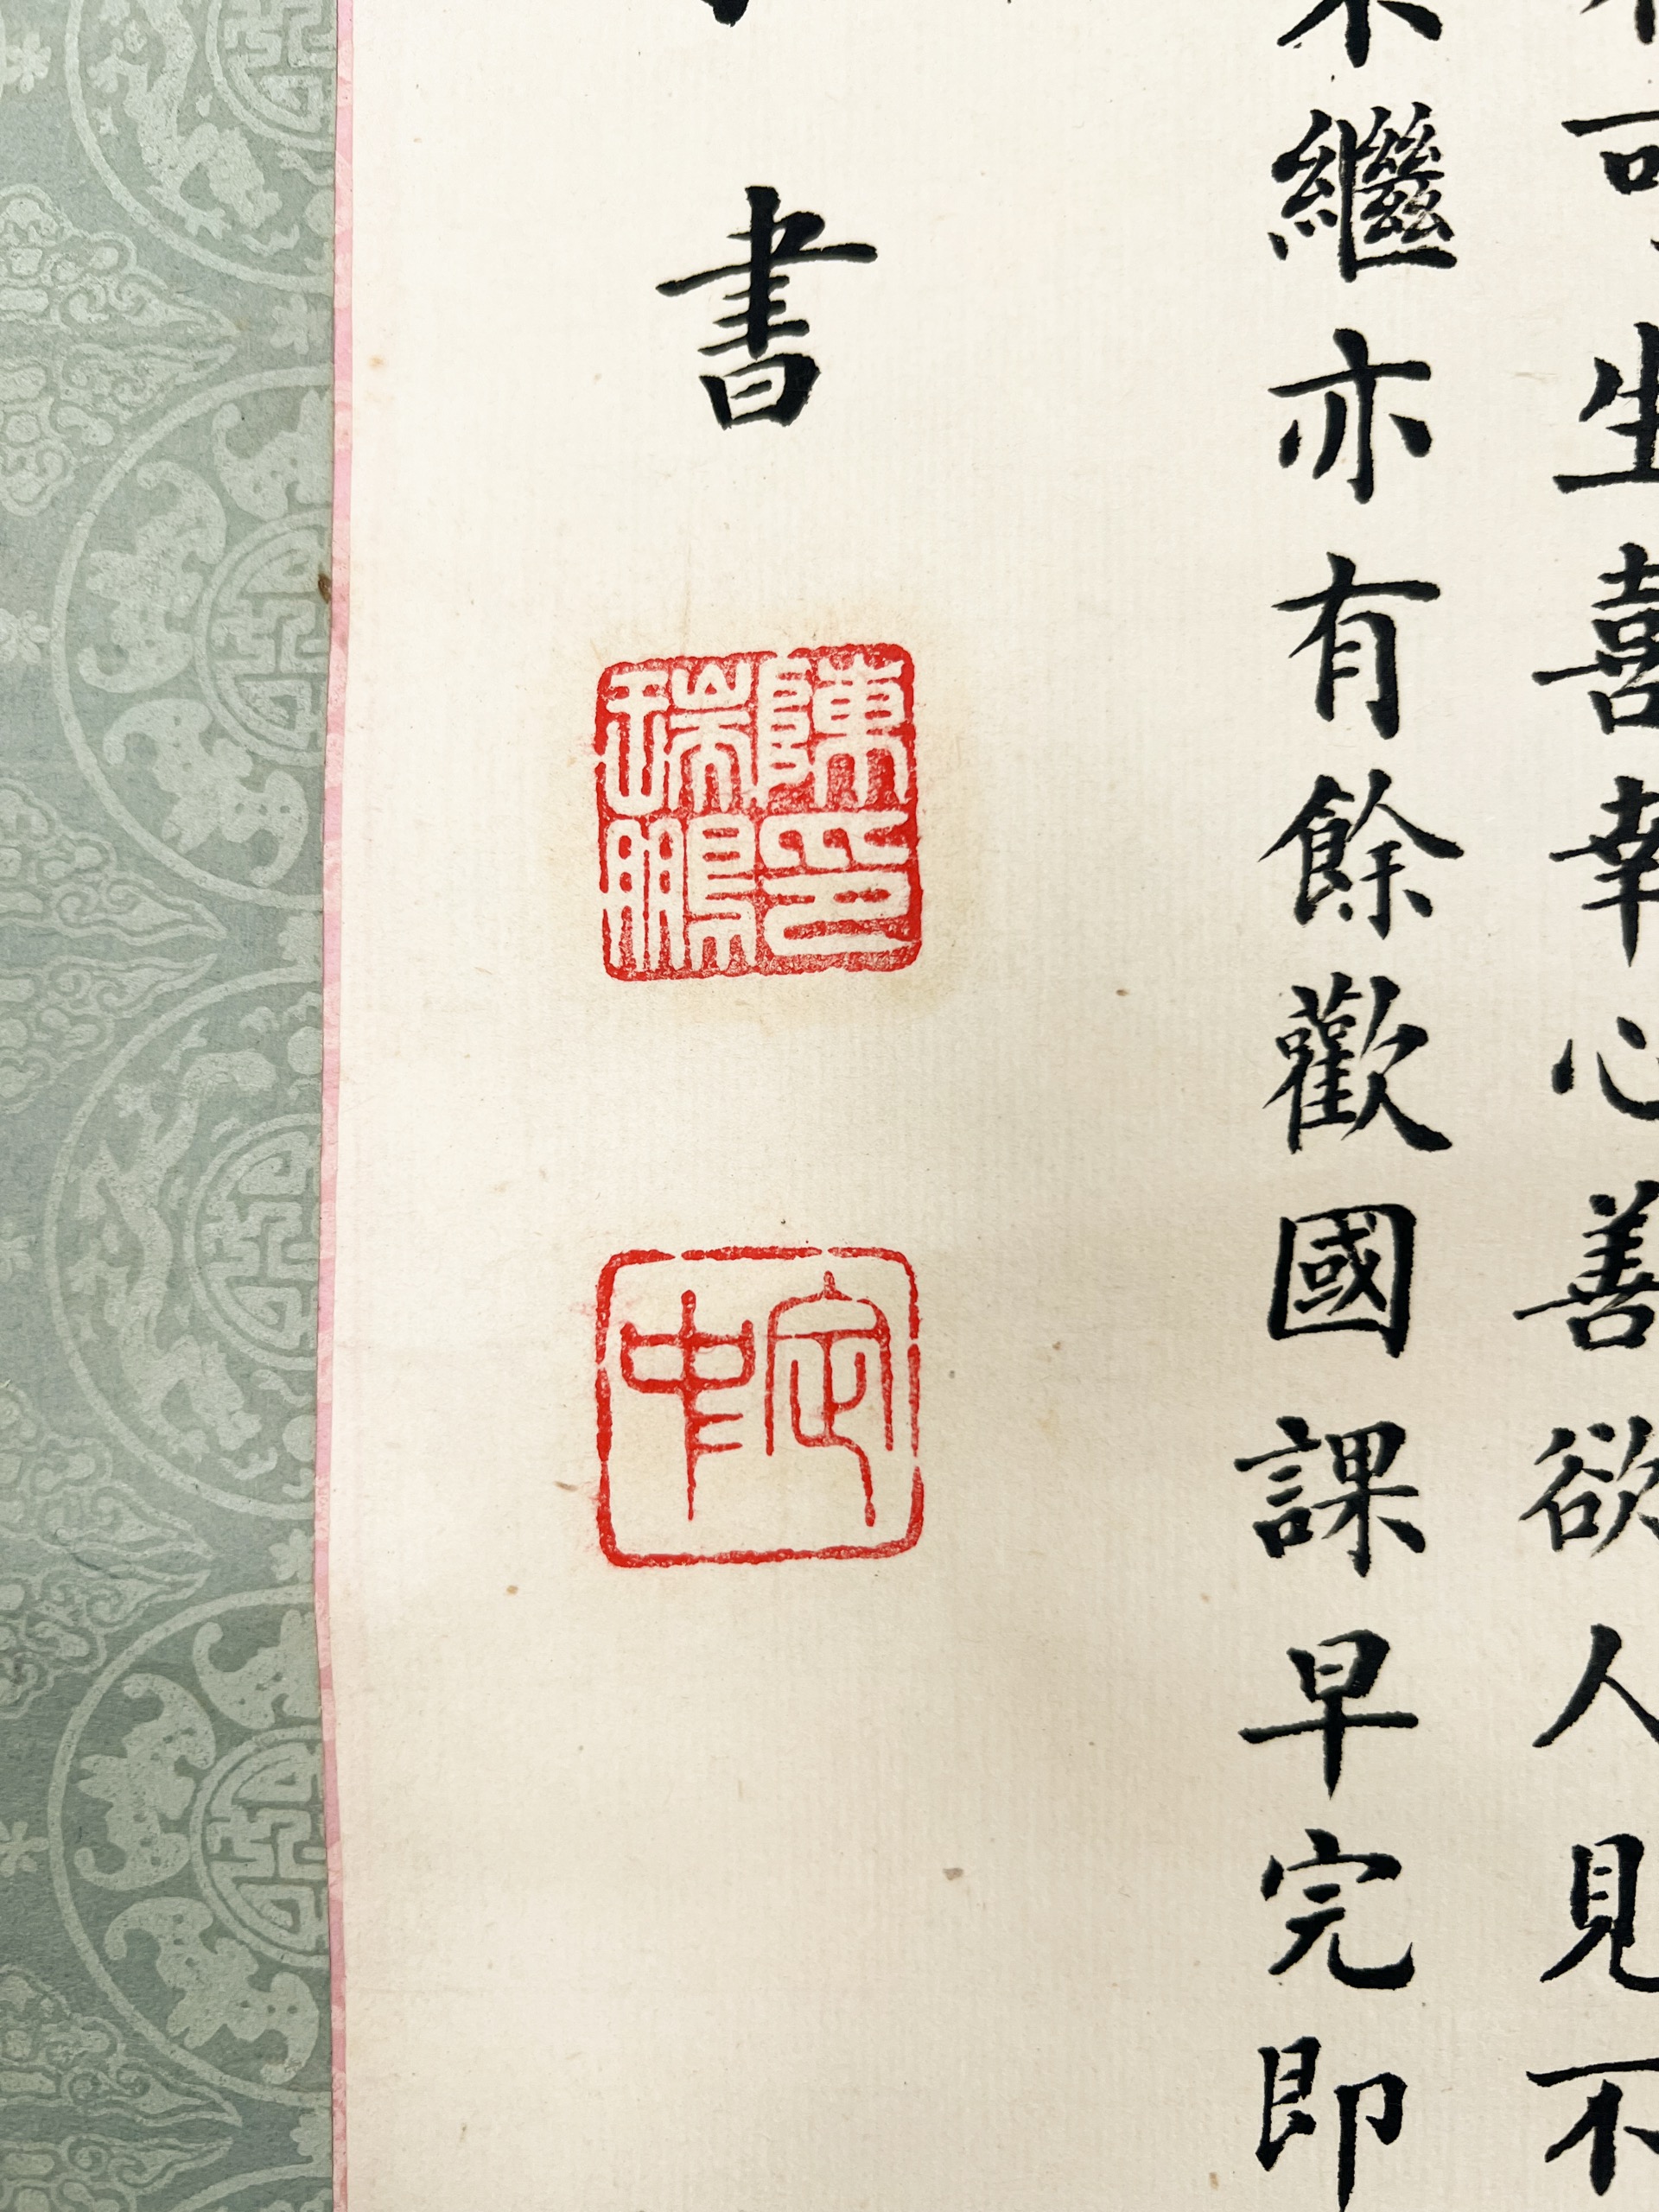 可生喜幸心善欲人見不
繼亦有餘歡國課早完即
書
陳瑞鵬印
定中